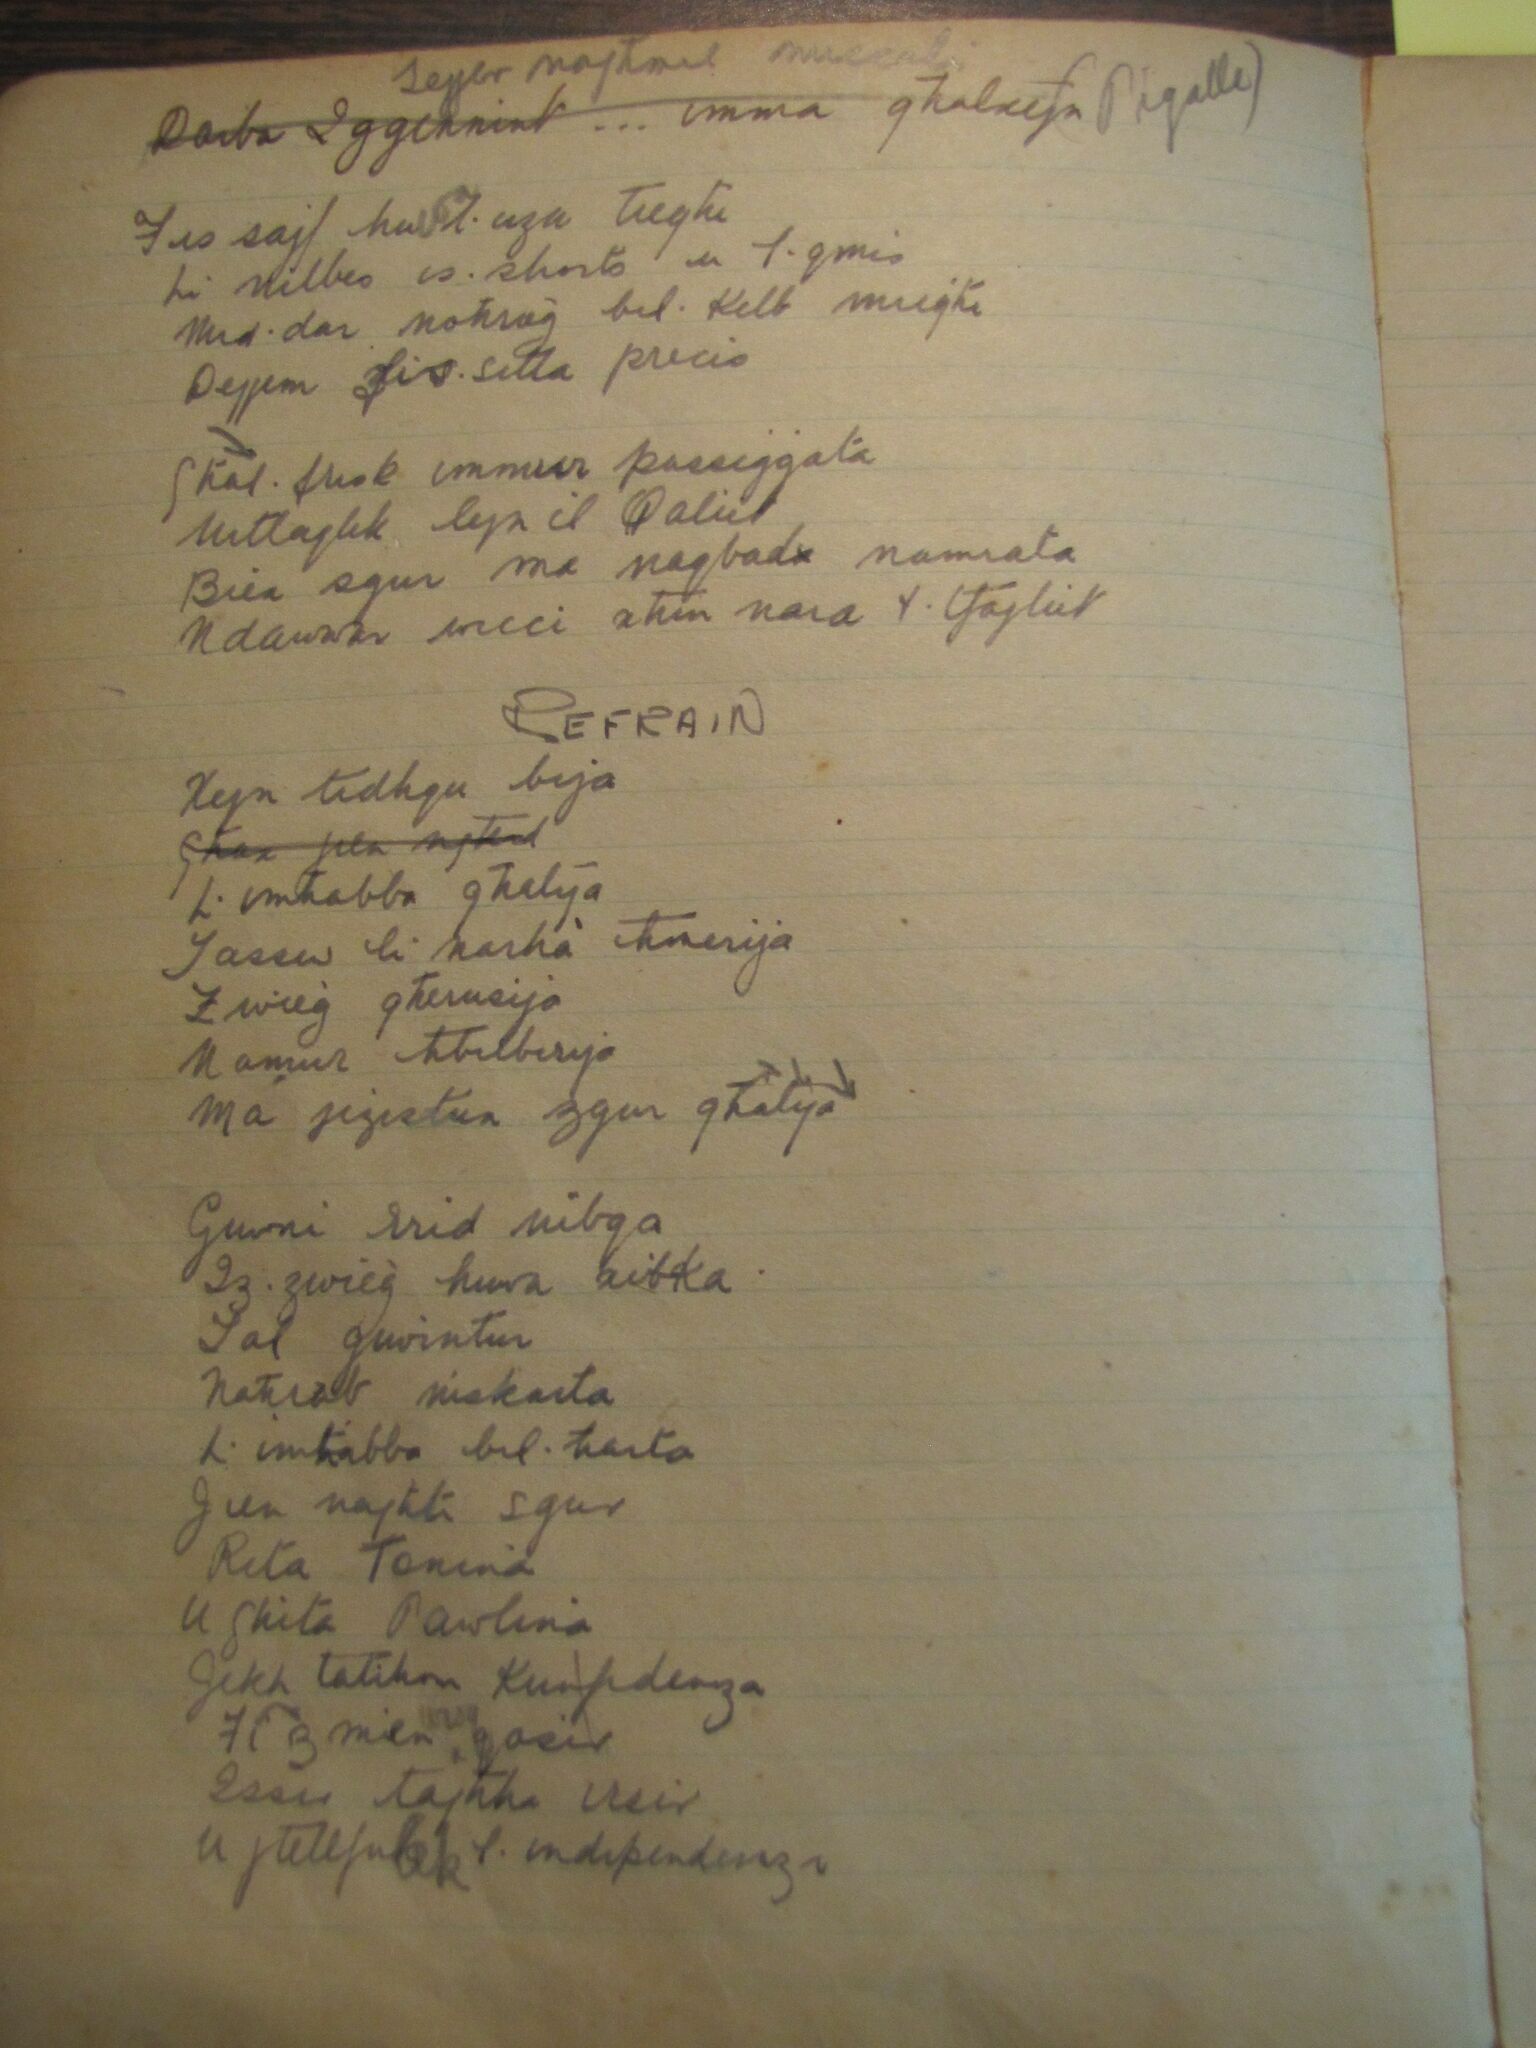 Darba Iggennint ... imma għalxejn (Pigalle)
Fis sajf hu l. uzu tiegħi
Li nilbes is. shorts u l. qmis
Mid. dar noħroġ bil. Kelb miegħi
Dejjem fis. sitta preċis
Għal. frisk immur passiġġata
Nitlaghk lejn il Qaliet
Biex sgur ma naqbadx namrata
Ndawwar wiċċi ħin nara t. tfajliet
REFRAIN
Kejn tidhqu bija
Għax jien ngħid
L. imħabba għalija
Jassew li narha tħmerija
Zwieġ għerusija
Namur tħbilberija
Ma jezistux zgur għalija
Guvni rrid nibqa
Iz. zwieġ huwa xibka
Tal qwintur
Naħrab niskarta
L. imħabba bil. ħarta
Jien najħti sgur
Rita Tonina
U Ghita Pawlina
Jekk tatihom Kunfidenza
Fi zmien qasir
Issir tajħha irsir
U jtellfulek l. independenza